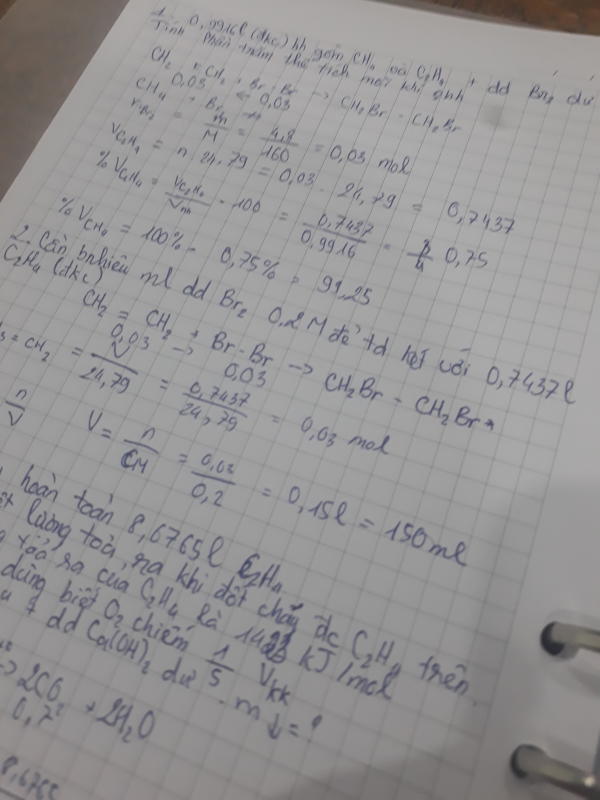 1. 0,9916l (đkc) hh gồm CH4 và C2H4 + dd Br2 dư
Tính phần trăm thể tích mỗi khí
CH2 = CH2 + Br - Br → CH2Br - CH2Br
0,03 ← 0,03
CH4 + Br2 →
nBr2 = m/M = 4,8/160 = 0,03 mol
VC2H4 = n 24,79 = 0,03 . 24,79 = 0,7437
% VC2H4 = VC2H4/Vhh . 100 = 0,7437/0,9916 = 3/4 0,75
% VCH4 = 100% - 0,75% = 99,25
2. Cần bnhiêu ml dd Br2 0,2M để td hết với 0,7437l
C2H4 (đkc)
CH2 = CH2 + Br - Br → CH2Br - CH2Br
0,03 → 0,03
= CH2 = V/24,79 = 0,7437/24,79 = 0,03 mol
n/V V = n/CM = 0,03/0,2 = 0,15l = 150ml
hoàn toàn 8,6765l C2H4
lượng toả ra khi đốt cháy đc C2H4 trên
toả ra của C2H4 là kJ/mol
dùng biết O2 chiếm 1/5 Vkk
+ dd Ca(OH)2 dư . m↓ = ?
→ 2CO2 + 2H2O
0,7
8,6765